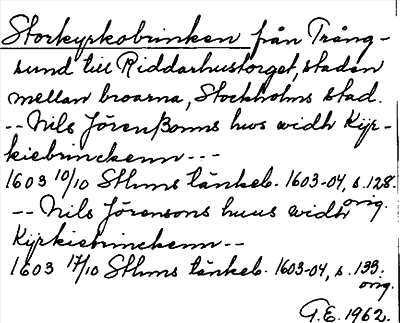 Storkyrkobrinken från Trång-
sund till Riddarhustorget, staden
mellan broarna, Stockholms stad.
-- Nils Jörenßonns hws widh Kÿr-
kiebrinckenn ---
1603 10/10 Sthms tänkeb. 1603-04, s. 128.
orig.
-- Nils Jörensons huus widh
Kÿrkiebrinckenn --
1603 17/10 Sthms tänkeb. 1603-04, s. 133.
orig.
G.E. 1962.